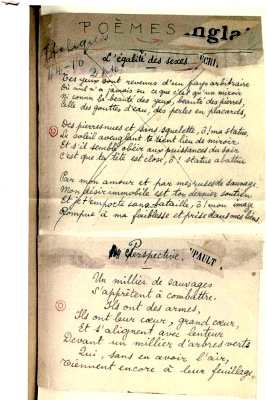 POÈMES
L'égalité des sexes
Tes yeux sont revenus d'un pays arbitraire
Où nul n'a jamais su ce que c'est qu'un regard
Ni connu la beauté des yeux, beauté des pierres,
Celle des gouttes d'eau, des perles en placards,
Des pierres nues et sans squelette, ô! ma statue,
Le soleil aveuglant te tient lieu de miroir
Et s'il semble obéir aux puissances du soir
C'est que ta tête est close, ô! statue abattue
Par mon amour et par mes ruses de sauvage.
Mon désir immobile est ton dernier soutien
Et je t'emporte sans bataille, ô! mon image
Rompue à ma faiblesse et prise dans mes liens
Perspective.
Un millier de sauvages
S'apprêtent à combattre.
Ils ont des armes,
Ils ont leur cœur, grand cœur,
Et s'alignent avec lenteur
Devant un millier d'arbres verts
Qui, sans en avoir l'air,
Tiennent encore à leur feuillage.